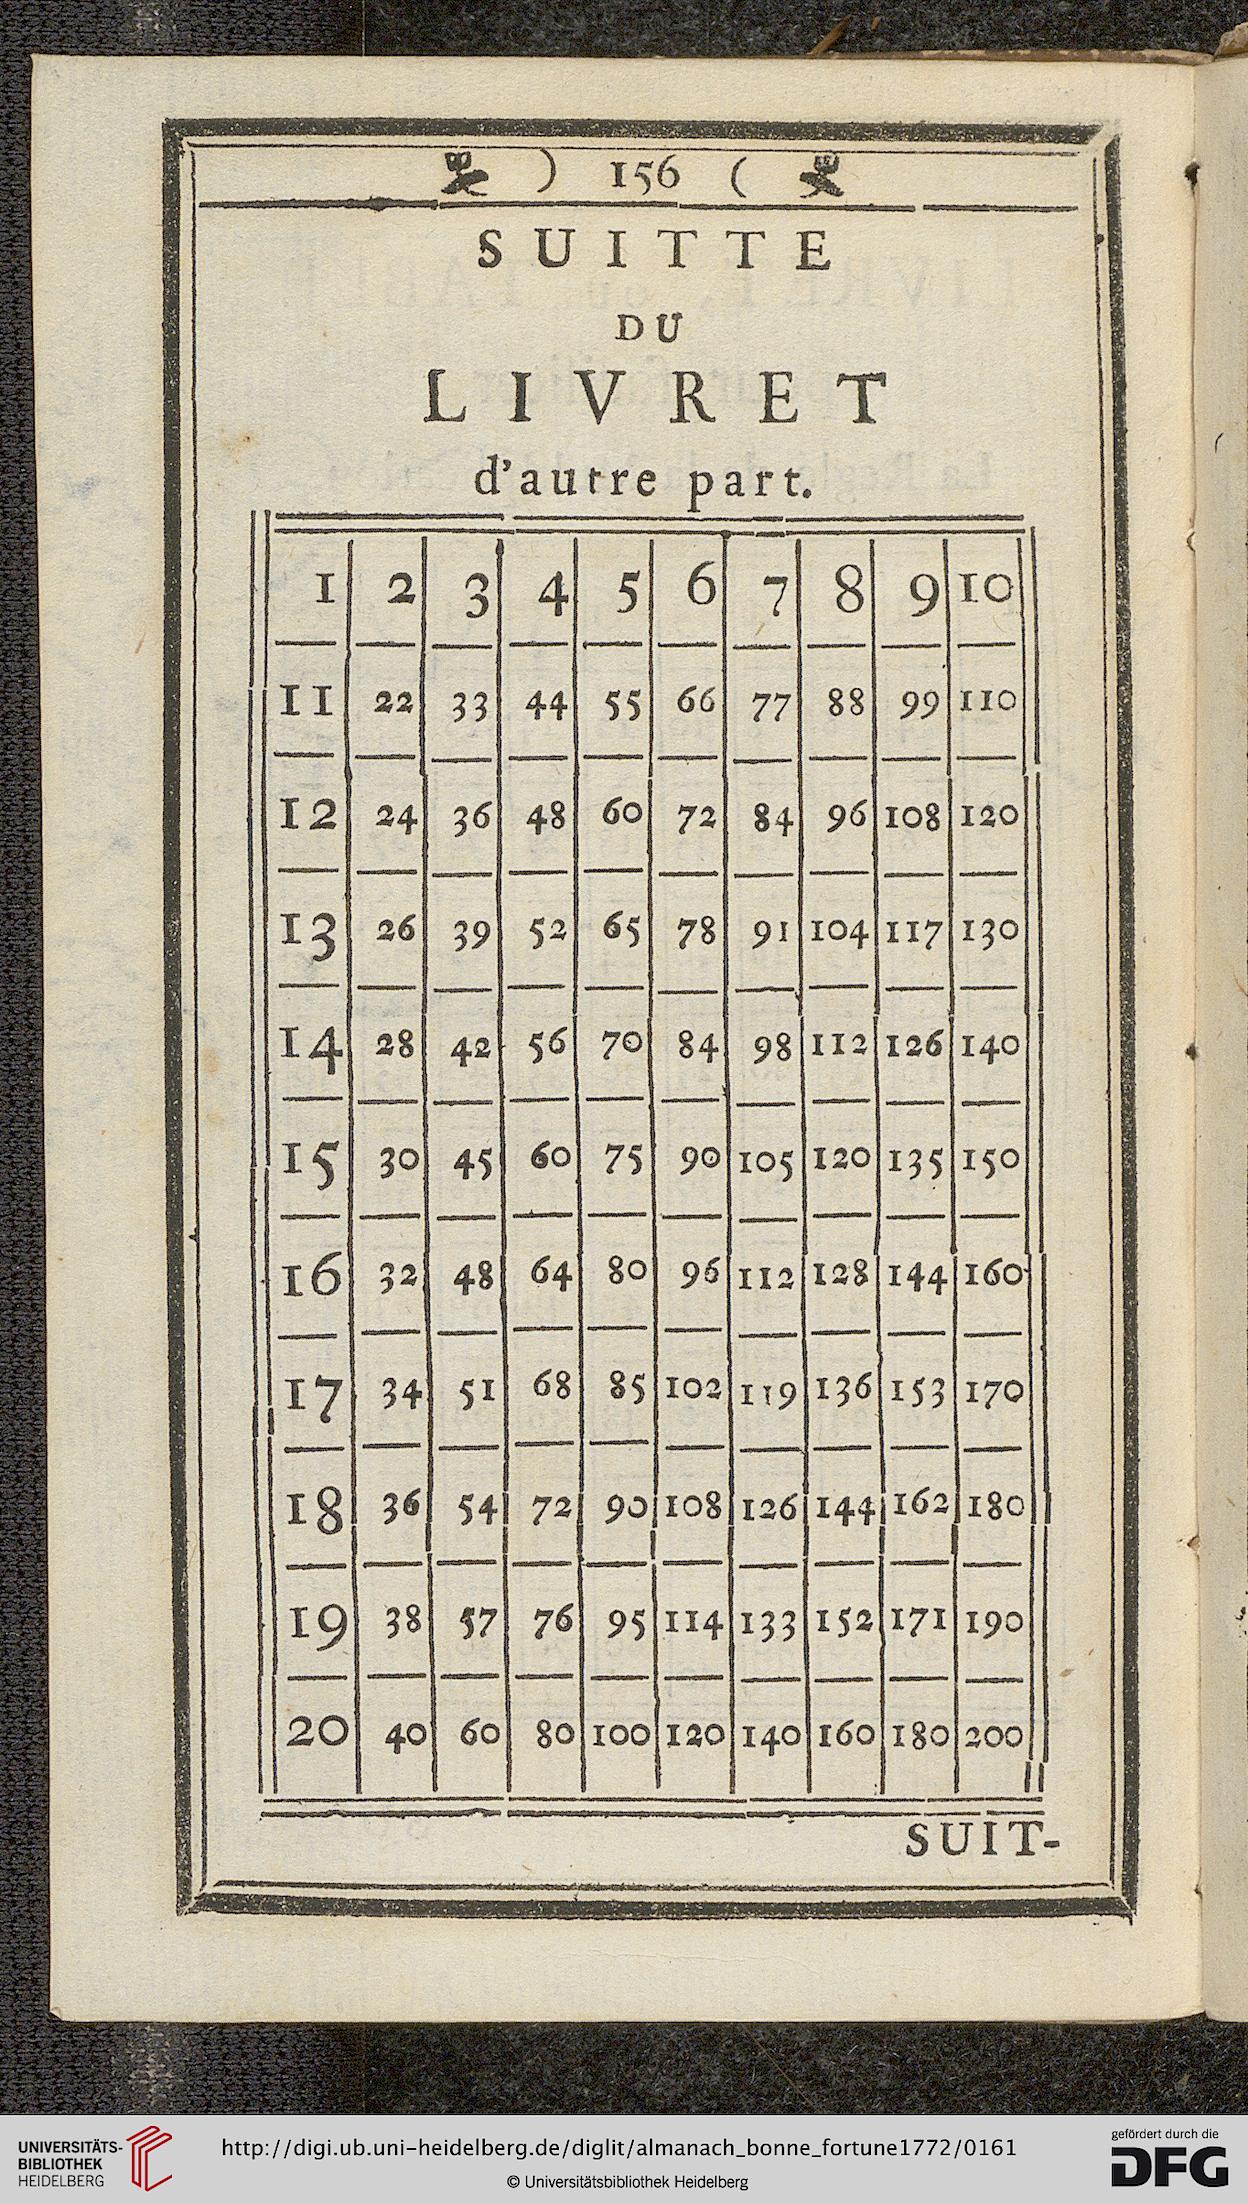 ) 156 (
SUITTE
DU
LIVRET
d'autre part.
1 2 3 4 5 6 7 8 9 10
11 22 33 44 55 66 77 88 99 110
12 24 36 48 60 72 84 96 108 120
13 26 39 52 65 78 91 104 117 130
14 28 42 56 70 84 98 112 126 140
15 30 45 60 75 90 105 120 135 150
16 32 48 64 80 96 112 128 144 160
17 34 51 68 85 102 119 136 153 170
18 36 54 72 90 108 126 144 162 180
19 38 57 76 95 114 133 152 171 190
20 40 60 80 100 120 140 160 180 200
SUIT-
UNIVERSITÄTS-
BIBLIOTHEK
HEIDELBERG
http://digi.ub.uni-heidelberg.de/diglit/almanach_bonne_fortune1772/0161
© Universitätsbibliothek Heidelberg
gefördert durch die
DFG